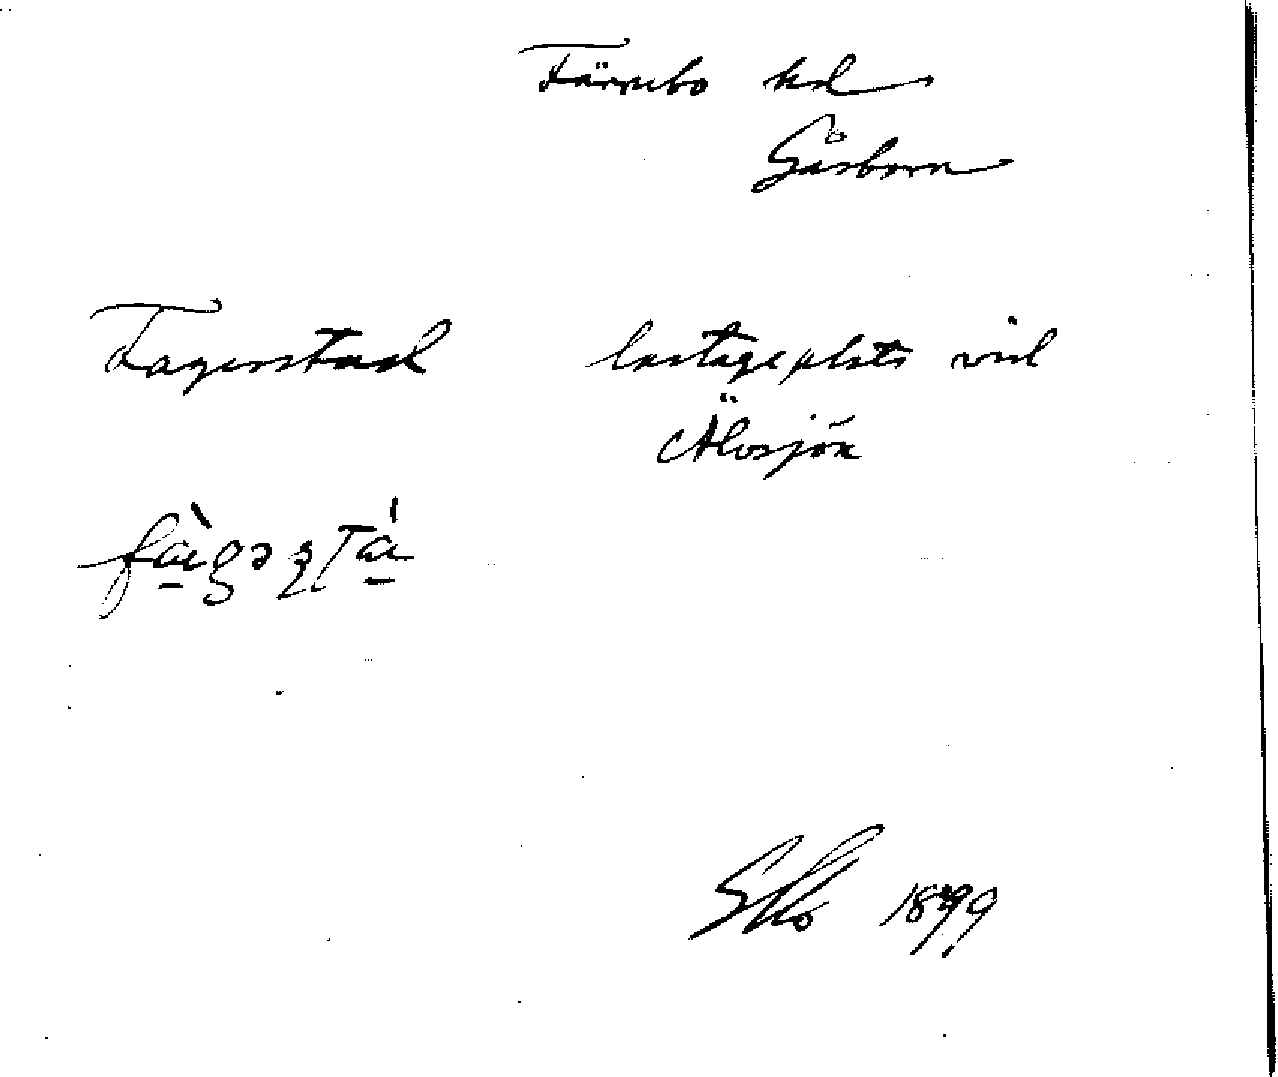 Färnebo hd
Gåsborn
Fagerstad lastageplats vid
Älvsjön
fàgəʂtá
1899